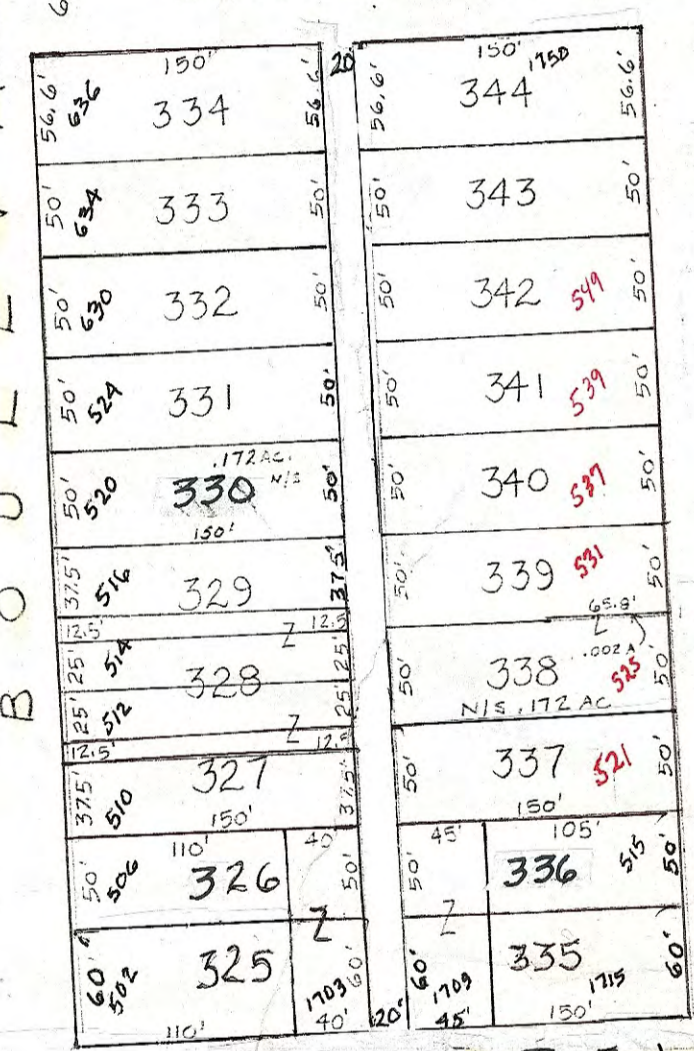 6
BOULEVA
150'
20'
56.6' 636 334 56.6'
50' 634 333 50'
50' 630 332 50'
50' 524 331 50'
.172 AC.
50' 520 330 N/S 50'
150'
37.5' 516 329 37.5'
12.5' Z 12.5
25' 514 25'
328
25' 512 25'
12.5' Z 12.5
37.5' 510 327 37.5'
150'
110' 40'
50' 506 326 50'
Z
60' 502 325 1703 60'
110' 40' 20'
150' 1750
56.6' 344 56.6'
50' 343 50'
50' 342 549 50'
50' 341 539 50'
50' 340 537 50'
50' 339 531 50'
65.8'
Z
.002 A
50' 338 525 50'
N/S .172 AC
50' 337 521 50'
150'
45' 105'
50' 336 515 50'
Z
60' 1709 335 1715 60'
45' 150'